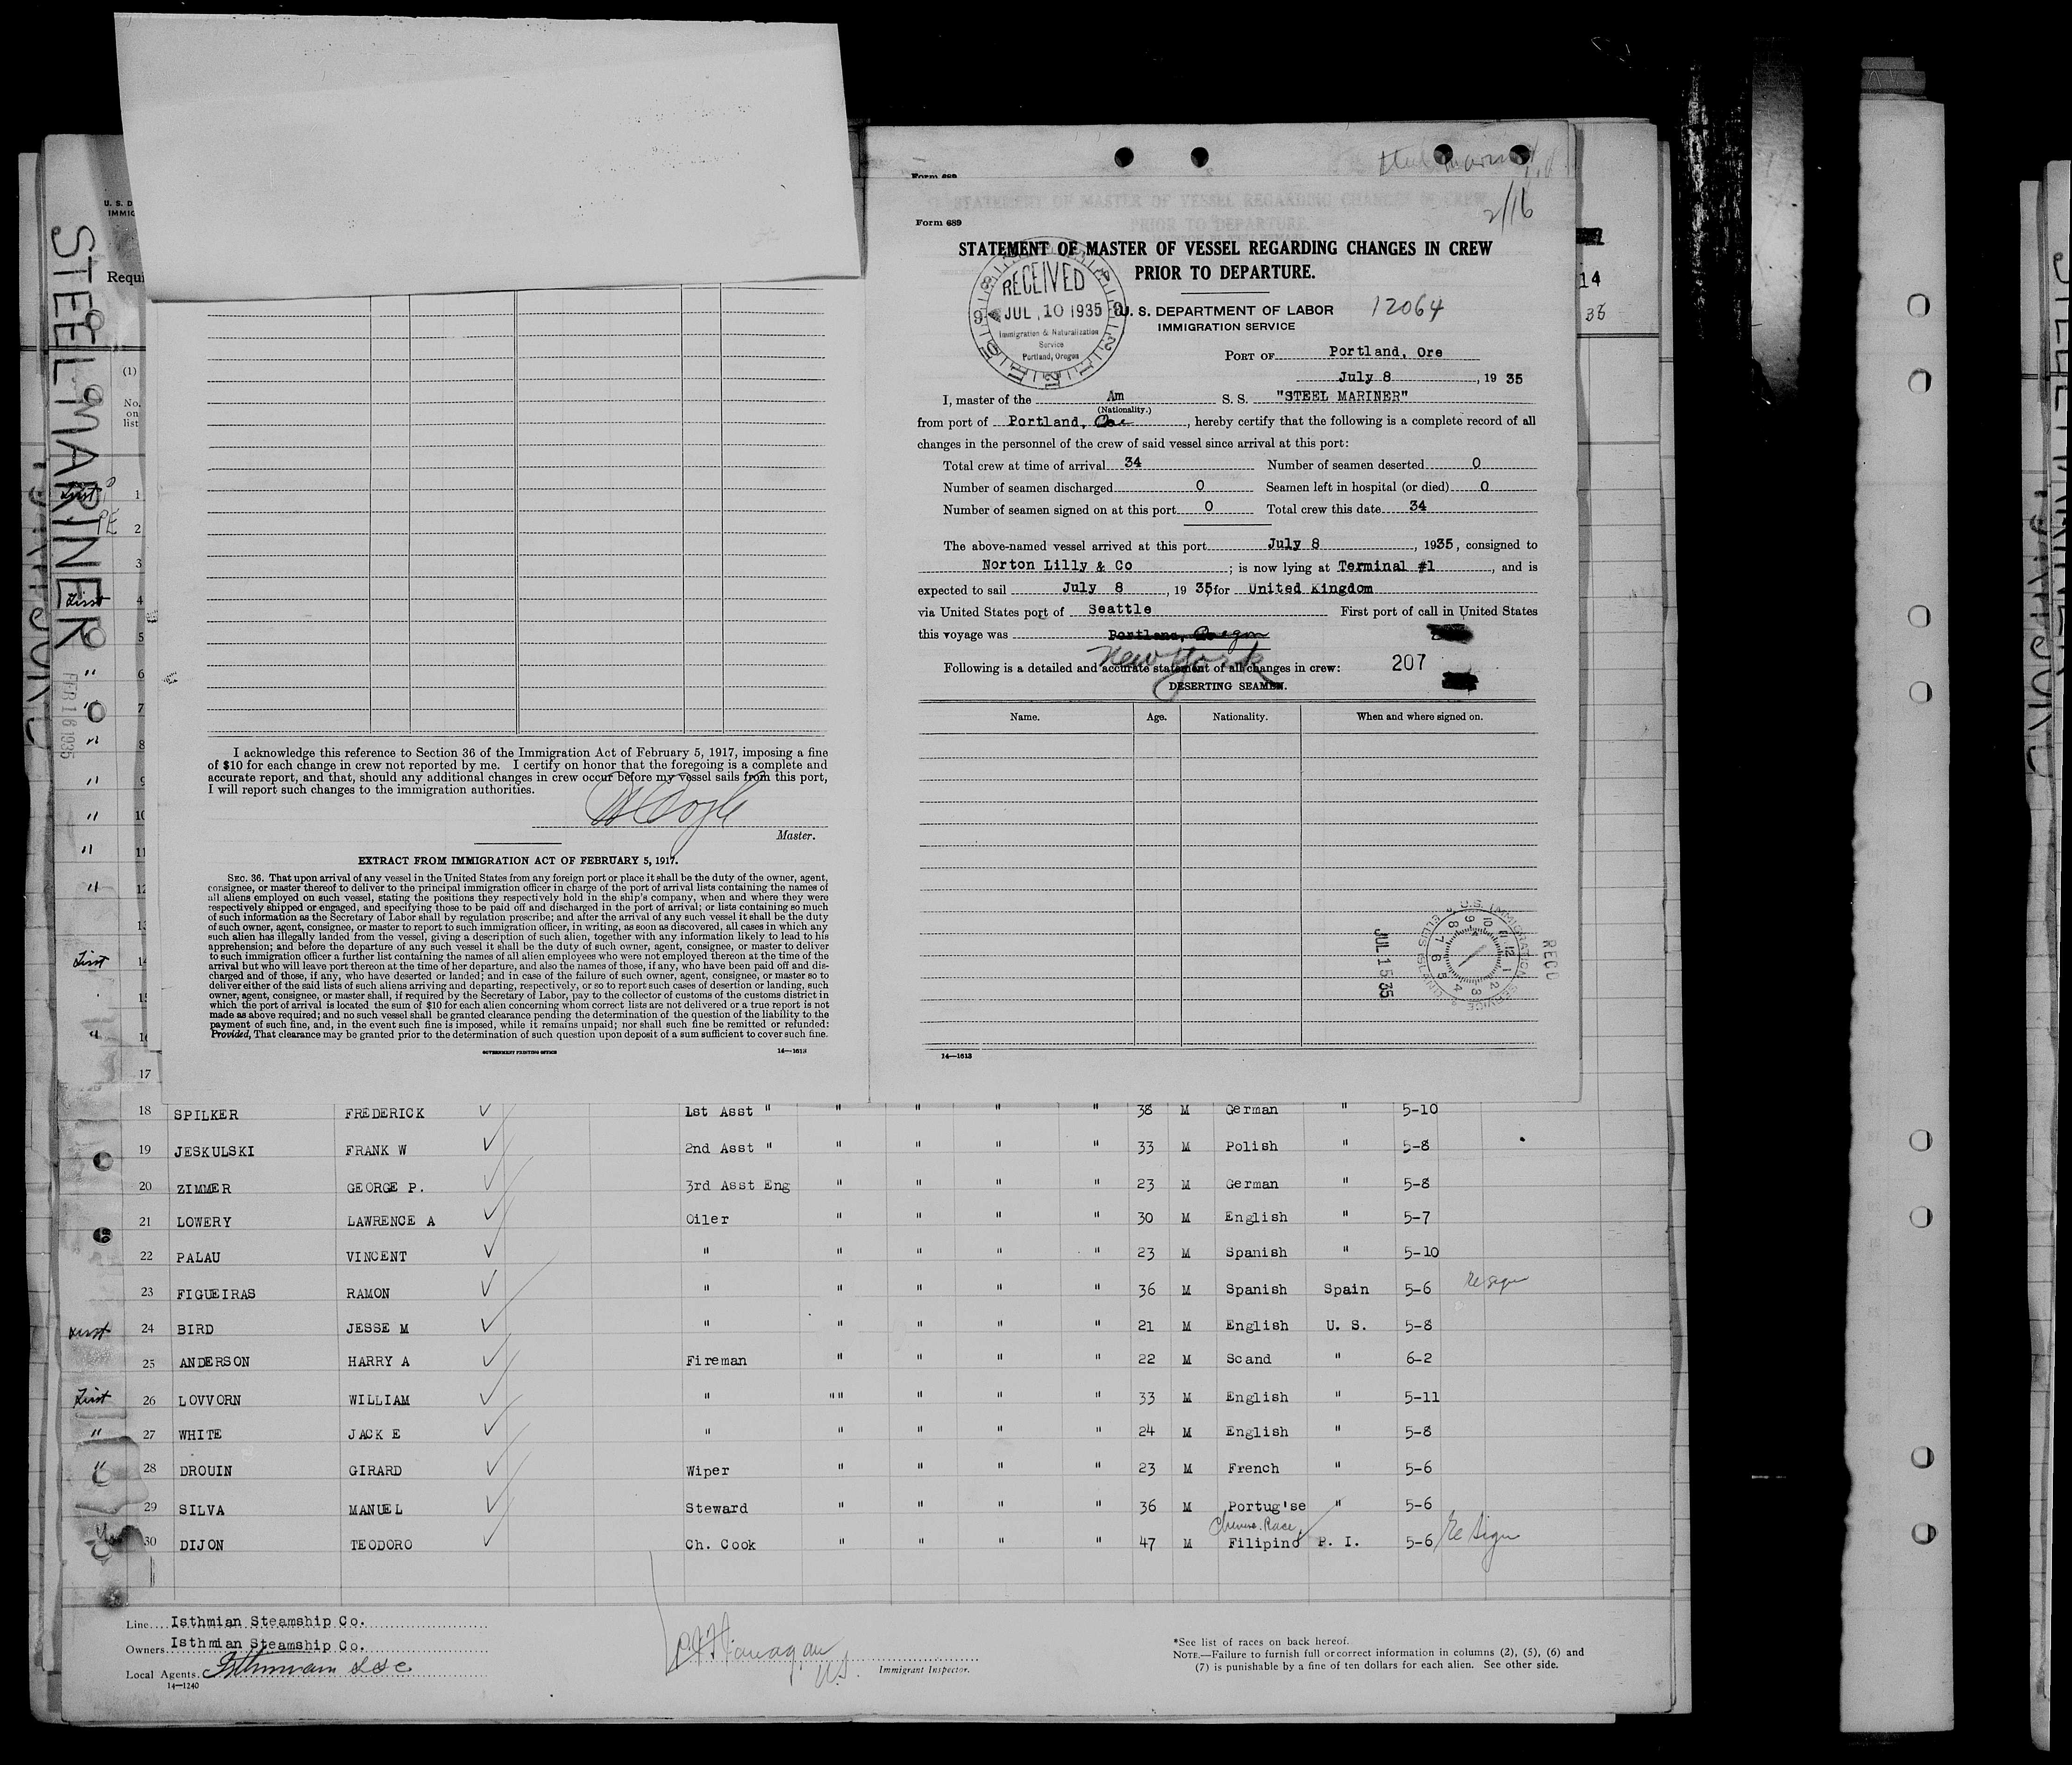 STEEL MARINER
FEB 16 1935
U. S. D
IMMIG
Requi
(1)
No.
on
list
First 1
2
3
First 4
5
" 6
" 7
" 8
" 9
" 10
" 11
" 12
13
First 14
15
" 16
17
I acknowledge this reference to Section 36 of the Immigration Act of February 5, 1917, imposing a fine
of $10 for each change in crew not reported by me. I certify on honor that the foregoing is a complete and
accurate report, and that, should any additional changes in crew occur before my vessel sails from this port,
I will report such changes to the immigration authorities.
Master.
EXTRACT FROM IMMIGRATION ACT OF FEBRUARY 5, 1917.
SEC. 36. That upon arrival of any vessel in the United States from any foreign port or place it shall be the duty of the owner, agent,
consignee, or master thereof to deliver to the principal immigration officer in charge of the port of arrival lists containing the names of
all aliens employed on such vessel, stating the positions they respectively hold in the ship's company, when and where they were
respectively shipped or engaged, and specifying those to be paid off and discharged in the port of arrival; or lists containing so much
of such information as the Secretary of Labor shall by regulation prescribe; and after the arrival of any such vessel it shall be the duty
of such owner, agent, consignee, or master to report to such immigration officer, in writing, as soon as discovered, all cases in which any
such alien has illegally landed from the vessel, giving a description of such alien, together with any information likely to lead to his
apprehension; and before the departure of any such vessel it shall be the duty of such owner, agent, consignee, or master to deliver
to such immigration officer a further list containing the names of all alien employees who were not employed thereon at the time of the
arrival but who will leave port thereon at the time of her departure, and also the names of those, if any, who have been paid off and dis-
charged and of those, if any, who have deserted or landed; and in case of the failure of such owner, agent, consignee, or master so to
deliver either of the said lists of such aliens arriving and departing, respectively, or so to report such cases of desertion or landing, such
owner, agent, consignee, or master shall, if required by the Secretary of Labor, pay to the collector of customs of the customs district in
which the port of arrival is located the sum of $10 for each alien concerning whom correct lists are not delivered or a true report is not
made as above required; and no such vessel shall be granted clearance pending the determination of the question of the liability to the
payment of such fine, and, in the event such fine is imposed, while it remains unpaid; nor shall such fine be remitted or refunded:
Provided, That clearance may be granted prior to the determination of such question upon deposit of a sum sufficient to cover such fine.
GOVERNMENT PRINTING OFFICE 14—1613
Form 689
2/16
Form 689
STATEMENT OF MASTER OF VESSEL REGARDING CHANGES IN CREW
PRIOR TO DEPARTURE.
RECEIVED
JUL 10 1935
Immigration & Naturalization
Service
Portland, Oregon
U. S. DEPARTMENT OF LABOR 12064
IMMIGRATION SERVICE
PORT OF Portland, Ore
July 8, 19 35
I, master of the Am S. S. "STEEL MARINER"
(Nationality.)
from port of Portland, Ore, hereby certify that the following is a complete record of all
changes in the personnel of the crew of said vessel since arrival at this port:
Total crew at time of arrival 34 Number of seamen deserted 0
Number of seamen discharged 0 Seamen left in hospital (or died) 0
Number of seamen signed on at this port 0 Total crew this date 34
The above-named vessel arrived at this port July 8, 1935, consigned to
Norton Lilly & Co; is now lying at Terminal #1, and is
expected to sail July 8, 19 35 for United Kingdom
via United States port of Seattle First port of call in United States
this voyage was Portland, Oregon
New York
Following is a detailed and accurate statement of all changes in crew: 207
DESERTING SEAMEN.
Name. Age. Nationality. When and where signed on.
JUL 15 35
U.S. IMMIGRATION SERVICE ELLIS ISLAND
RECD
14—1613
14
18 SPILKER FREDERICK 1st Asst " " " " " 38 M German " 5-10
19 JESKULSKI FRANK W 2nd Asst " " " " " 33 M Polish " 5-8
20 ZIMMER GEORGE P. 3rd Asst Eng " " " " 23 M German " 5-8
21 LOWERY LAWRENCE A Oiler " " " " 30 M English " 5-7
22 PALAU VINCENT " " " " " 23 M Spanish " 5-10
23 FIGUEIRAS RAMON " " " " " 36 M Spanish Spain 5-6 Resign
First 24 BIRD JESSE M " " " " " 21 M English U. S. 5-8
25 ANDERSON HARRY A Fireman " " " " 22 M Scand " 6-2
First 26 LOVVORN WILLIAM " "" " " " 33 M English " 5-11
" 27 WHITE JACK E " " " " " 24 M English " 5-8
" 28 DROUIN GIRARD Wiper " " " " 23 M French " 5-6
29 SILVA MANUEL Steward " " " " 36 M Portug'se " 5-6
Chinese Race
30 DIJON TEODORO Ch. Cook " " " " 47 M Filipino P. I. 5-6 Re Sign
Line Isthmian Steamship Co.
Owners Isthmian Steamship Co.
Local Agents Isthmian SSC
14—1240
Immigrant Inspector.
*See list of races on back hereof.
NOTE.—Failure to furnish full or correct information in columns (2), (5), (6) and
(7) is punishable by a fine of ten dollars for each alien. See other side.